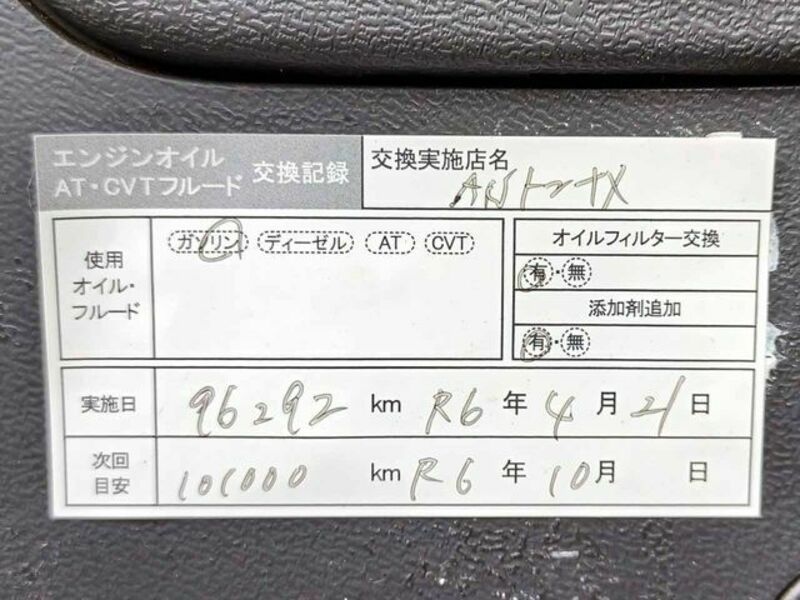 エンジンオイル
AT・CVTフルード 交換記録
交換実施店名
使用
オイル・
フルード
ガソリン ディーゼル AT CVT
オイルフィルター交換
有・無
添加剤追加
有・無
実施日 96292 km R6 年 4 月 21 日
次回
目安 101000 km R6 年 10 月 日